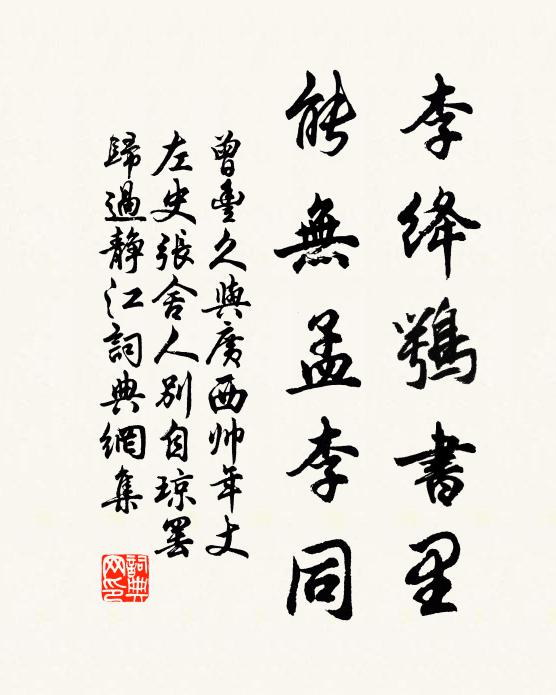 李絳鶚書里
能無孟李同
曾豐久與廣西帅年丈
左史張舍人別自琼罢
歸過靜江詞典網集
詞典网印